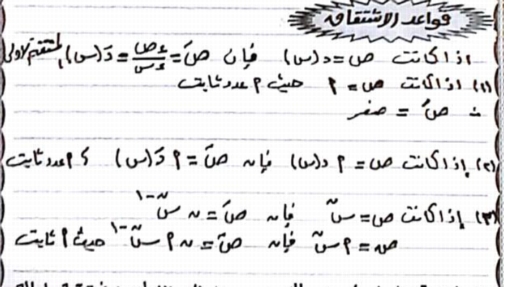 قواعد الاشتقاق
اذا كانت ص = د(س) فإن صَ = ءص/ءس = دَ(س) المشتقة الاولى
(١) اذا كانت ص = م حيث م عدد ثابت
∴ صَ = صفر
(٢) إذا كانت ص = م د(س) فإن صَ = م دَ(س) ، م عدد ثابت
(٣) إذا كانت ص = س^ن فإن صَ = ن س^(ن-١)
ص = م س^ن فإن صَ = ن م س^(ن-١) حيث م ثابت